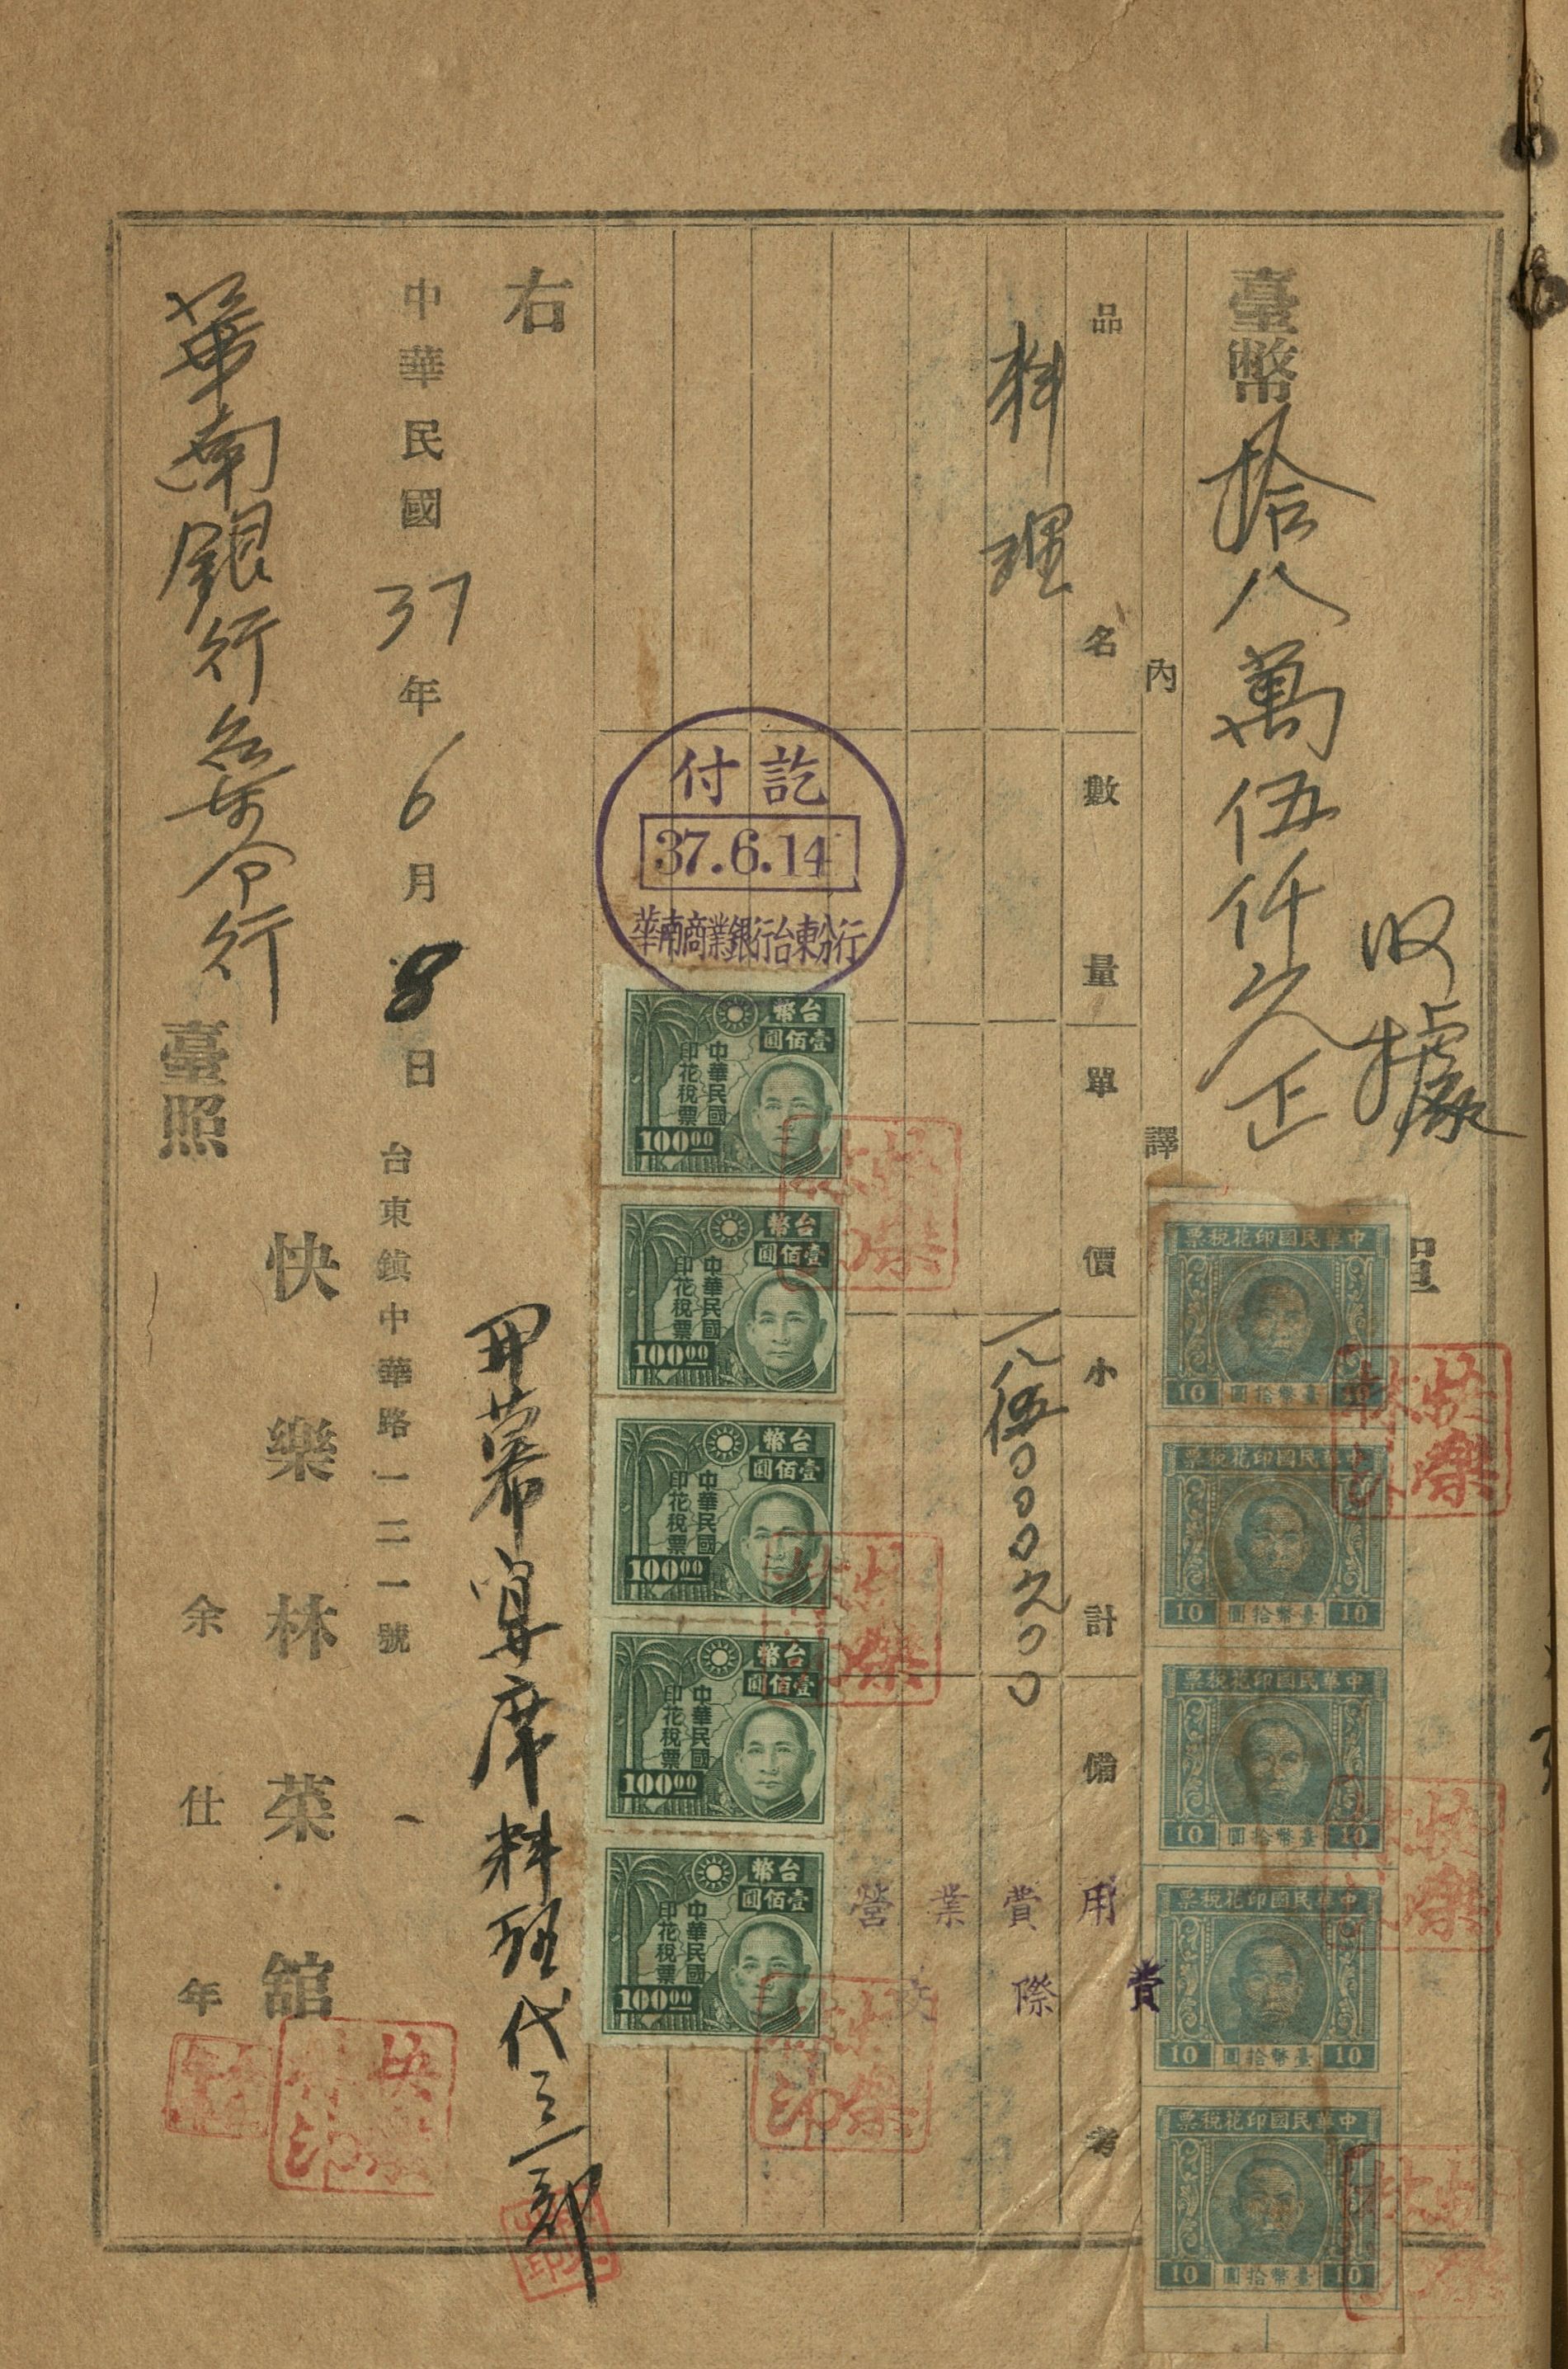 收據
臺幣拾八萬伍仟元正
內譯
品名
數量
單價
小計
備考
料理
一八伍000元00
營業費用
交際費
付訖
37.6.14
華南商業銀行台東分行
右
開幕宴席料理代三部
中華民國37年6月8日
台東鎮中華路一二一號
快樂林菜舘
余仕年
華南銀行
臺照
中華民國印花稅票
10 臺幣拾圓 10
中華民國印花稅票
10 臺幣拾圓 10
中華民國印花稅票
10 臺幣拾圓 10
中華民國印花稅票
10 臺幣拾圓 10
中華民國印花稅票
10 臺幣拾圓 10
台幣
壹佰圓
中華民國
印花稅票
100.00
台幣
壹佰圓
中華民國
印花稅票
100.00
台幣
壹佰圓
中華民國
印花稅票
100.00
台幣
壹佰圓
中華民國
印花稅票
100.00
台幣
壹佰圓
中華民國
印花稅票
100.00